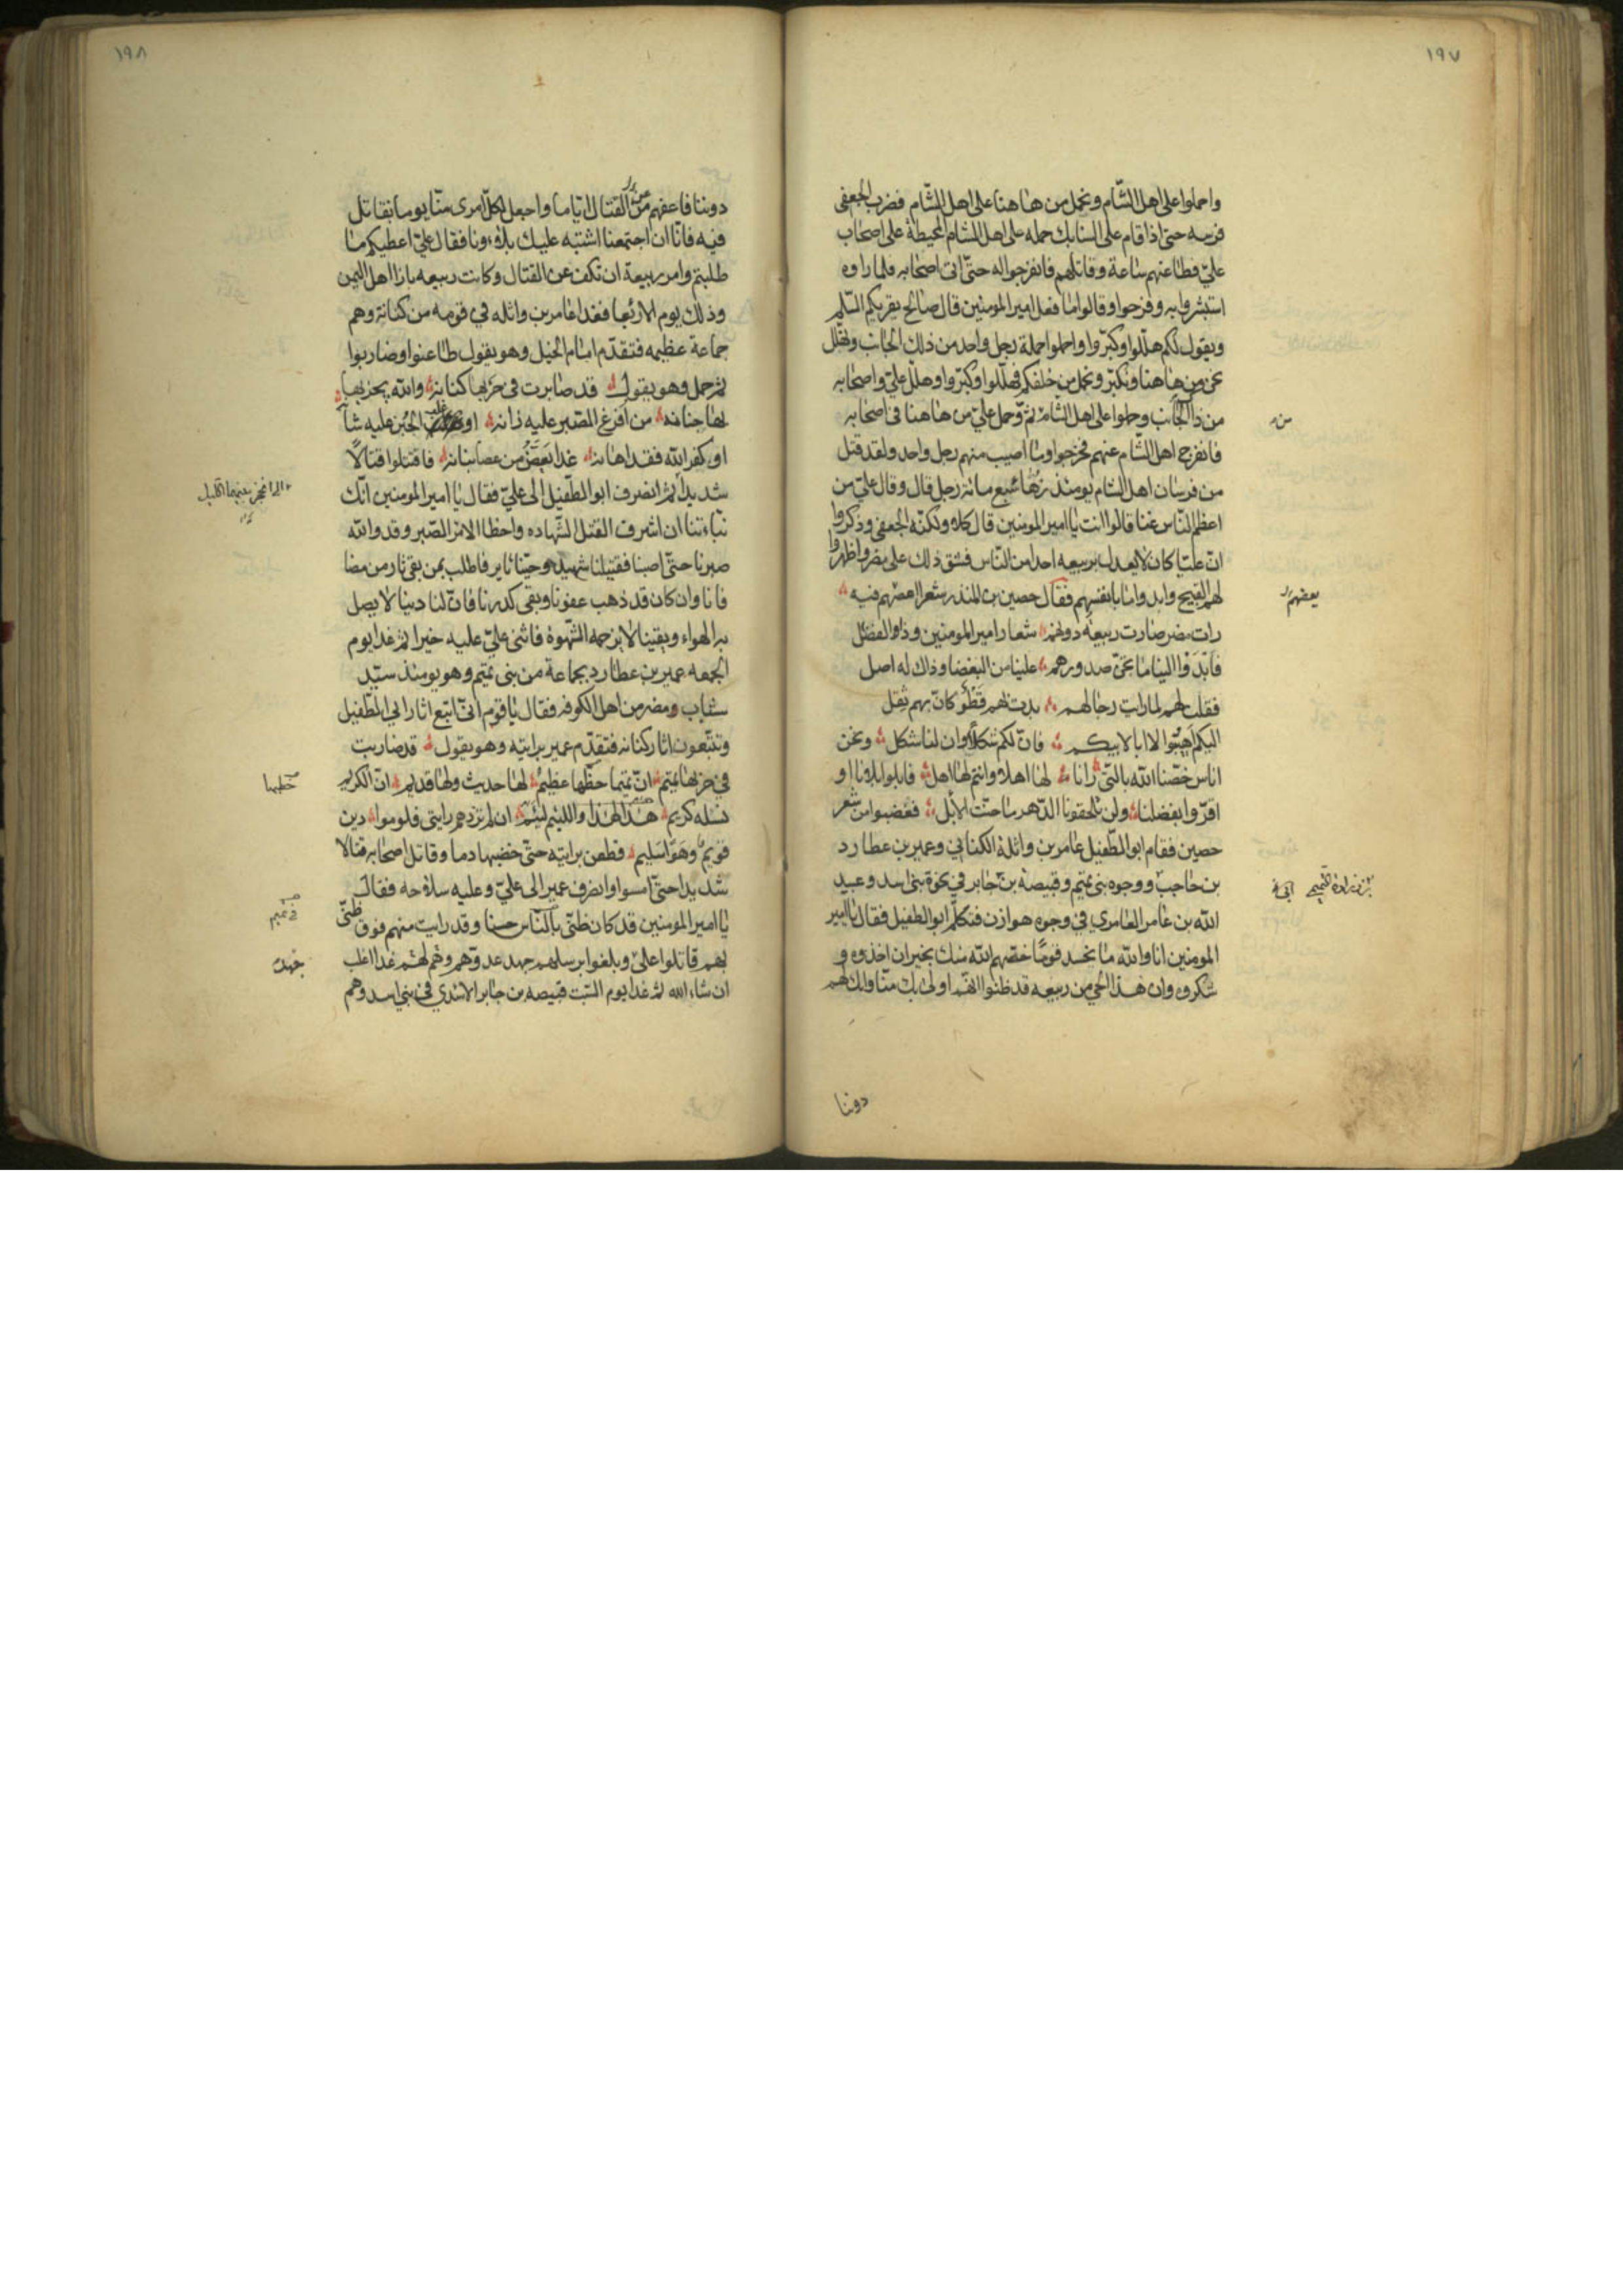 ١٩٧
واحملوا على اهل الشّام ونحمل من هاهنا على اهل الشّام فضرب الجعفى
فرسه حتى اذا قام على السنابك حمله على اهل الشام المحيطة على اصحاب
عليّ فطاعنهم ساعة وقاتلهم فانفرجوا له حتّى اتى اصحابه فلما راوه
استبشروا به وفرحوا وقالوا ما فعل امير المومنين قال صالح يقريكم السّلم
ويقول لكم هلّلوا وكبّروا واحملوا حملة رجل واحد من ذلك الجانب ونهلّل
نحن من هاهنا ونكبّر ونحمل من خلفكم فهلّلوا وكبّروا وهلّل عليّ واصحابه
من ذا الجانب وحملوا على اهل الشام ثمّ وحمل عليّ من هاهنا فى اصحابه
من
فانفرج اهل الشام عنهم فخرجوا وما اصيب منهم رجل واحد ولقد قتل
من فرسان اهل الشام يومئذ زهاء سبع مائة رجل قال وقال عليّ من
اعظم النّاس غنا قالوا انت يا امير المومنين قال كلا ولكنّه الجعفى وذكروا
انّ عليّا كان لا يعدل بربيعه احدا من النّاس فشق ذلك على مضر واظهروا
لهم القبيح وابدوا ما بانفسهم فقال حصين بن المنذر شعرا اغضبهم فيه
بعضهم
رات مضر صارت ربيعه دونهم شعار امير المومنين وذا الفضل
فابدَوْا الينا ما تحىّ صدورهم علينا من البغضا وذاك له اصل
فقلت لهم لما رايت رجالهم بدت لهم قطو كانّ بهم ثقل
اليكم اهيبوا لا ابا لابيكم فانّ لكم شكلا وان لنا شكل ونحن
اناس خصّنا الله بالتّى رانا لها اهلا وانتم لها اهل فابلوا بلانا او
اقرّوا بفضلنا ولن تلحقونا الدّهر ما حنت الابل فغضبوا من شعر
حصين فقام ابو الطفيل عامر بن واثلة الكناني وعمير بن عطارد
بن حاجب ووجوه بنى تميم وقبيصة بن جابر في نحوة بنى اسد وعبيد
بن زرارة التميمى
الله بن عامر العامري في وجوه هوازن فتكلّم ابو الطفيل فقال يا امير
المومنين انا والله ما نحسد قومًا خصّهم الله منك بخير ان اخذوه و
شكروه وان هذا الحي من ربيعه قد ظنوا انهم اولى بك منّا وانك لهم
دوننا
١٩٨
دوننا فاعفهم من القتال ايّاما واجعل لكلّ امرى منّا يوما يقاتل
عن
فيه فانّا ان اجتمعنا اشتبه عليك بلاونا فقال عليّ اعطيكم ما
طلبتم وامر ربيعة ان تكف عن القتال وكانت ربيعه بازا اهل اليمن
وذلك يوم الاربعا فغدا عامر بن واثله في قومه من كنانة وهم
جماعة عظيمه فتقدّم امام الخيل وهو يقول طاعنوا وضاربوا
ثم حمل وهو يقول قد صابرت فى حربها كنانه والله يجزيها
لها جنانه من افرغ الصّبر عليه زانه او غلب الجُبن عليه شانه
او كفر الله فقد اهانه غدا يَعَضّ من عصا بنانه فاقتلوا قتالًا
شديدا ثم انصرف ابو الطّفيل الى عليّ فقال يا امير المومنين انّك
نبّاءتنا ان اشرف القتل الشّهاده واحظا الامر الصّبر وقد والله
صبرنا حتّى اصبنا فقتيلنا شهيد وحيّنا ثاير فاطلب بمن بقى ثار من مضا
فانا وان كان قد ذهب عفونا وبقى كدرنا فانّ لنا دينا لا يميل
به الهواء ويقينا لا يزحمه الشّهوة فاثنى عليّ عليه خيرا ثم غدا يوم
الجمعه عمير بن عطارد بجماعة من بنى تميم وهو يومئذ سيّد
شباب ومضر من اهل الكوفه فقال يا قوم انّى اتبع اثار ابي الطّفيل
وتتبعون اثار كنانه فتقدّم عمير برايته وهو يقول قد ضاربت
في حربها تميم انّ تميما حظّها عظيمُ لها حديث ولها قديم انّ الكريم
خطبها
نسله كريم هذا لهذا واللئيم لئيم ان لم تزدهم رايتى فلوموا دين
قويم وهوًا سليم فطعن برايته حتّى خضبها دما وقاتل اصحابه قتالا
شديدا حتّى امسوا وانصرف عمير الى عليّ وعليه سلاحه فقال
يا امير المومنين قد كان ظنّى بالنّاس حسنا وقد رايت منهم فوق ظنّى
بهم قاتلوا على وبلغوا جهد عدوّهم وهم لهم غدا اغلب
جهدك
ان شاء الله ثم غدا يوم السّبت قبيصه بن جابر الاسدي في بنى اسد وهم